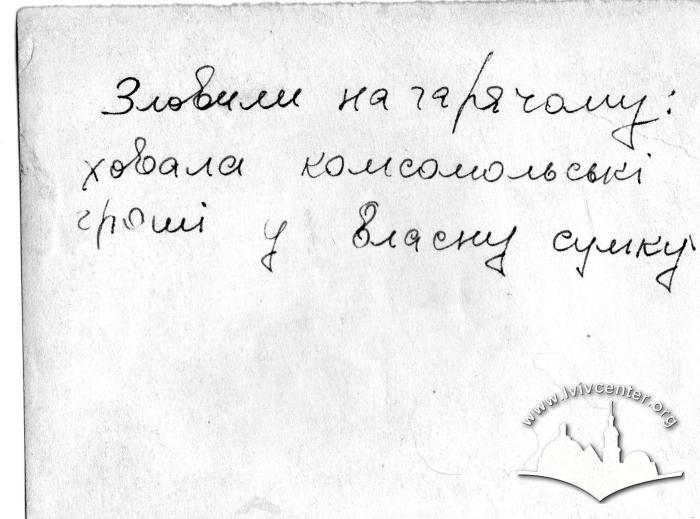 Зловили на гарячому:
ховала комсомольські
гроші у власну сумку
www.lvivcenter.org